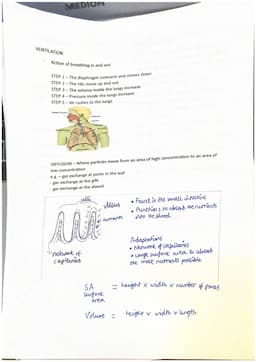 MEDION
VENTILATION
- Action of breathing in and out
STEP 1 - The diaphragm contracts and moves down
STEP 2 - The ribs move up and out
STEP 3 - The volume inside the lungs increase
STEP 4 - Pressure inside the lungs increase
STEP 5 - Air rushes to the lungs
DIFFUSION - Where particles move from an area of high concentration to an area of
low concentration
e.g. - gas exchange at pores in the leaf
- gas exchange at the gills
- gas exchange at the alveoli
villus
nutrients
network of
capillaries
• Found in the small intestine
• Functions to absorb the nutrients
into the blood.
Adaptations
• Network of capillaries
• Large surface area to absorb
the most nutrients possible
SA = height x width x number of faces
surface
area
Volume = height x width x length